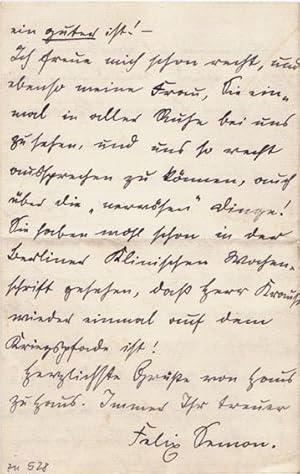 ein guter ist! –
Ich freue mich schon recht, und
ebenso meine Frau, Sie ein-
mal in aller Ruhe bei uns
zu sehen, und uns so recht
aussprechen zu können, auch
über die „nervösen" Dinge!
Sie haben wohl schon in der
Berliner Klinischen Wochen-
schrift gesehen, daß Herr Krause
wieder einmal auf dem
Kriegspfade ist!
Herzlichste Grüße von Haus
zu Haus. Immer Ihr treuer
Felix Semon.
zu 528